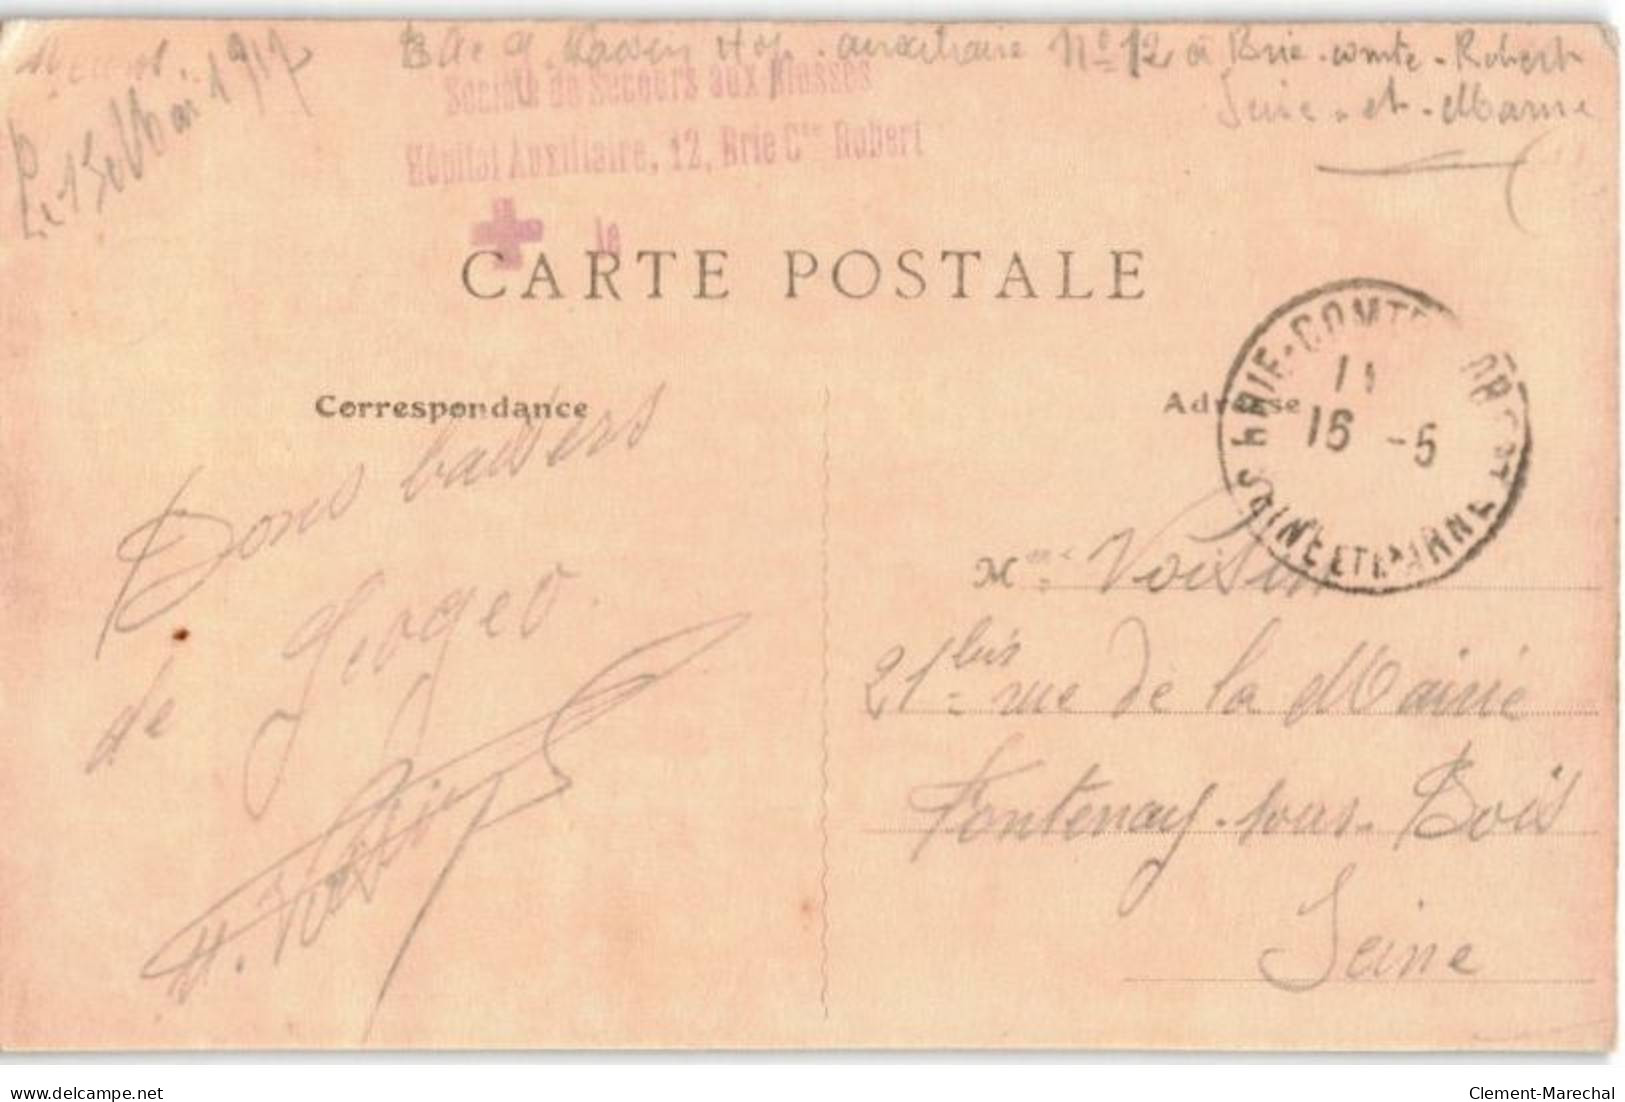 Le 15 Mai 1917
Hop. auxiliaire N° 12 à Brie-comte-Robert
Seine-et-Marne
Société de Secours aux Blessés
Hôpital Auxiliaire, 12, Brie Cte Robert
le
CARTE POSTALE
Correspondance
Adresse
BRIE-COMTE-ROBERT
11
16 -5
SEINE ET MARNE
Bons baisers
de Georges
Mme Voisin
21bis rue de la Mairie
Fontenay-sous-Bois
Seine
delcampe.net
Clement-Marechal